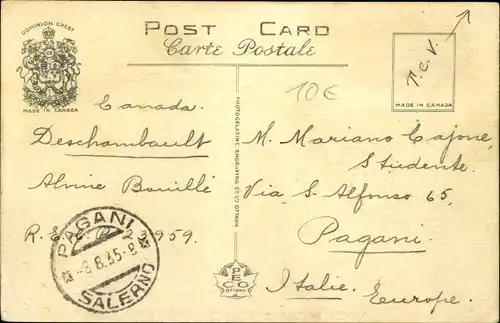 POST CARD
Carte Postale
DOMINION CREST
MADE IN CANADA
T.C.V.
MADE IN CANADA
10€
Canada.
Deschambault
Alvine Bouillé
R. 23959.
PHOTOGELATINE ENGRAVING CO LTD OTTAWA
M. Mariano Cajone,
Studente.
Via S. Alfonso 65,
Pagani.
Italie. Europe.
PAGANI
-8.8.35-8
SALERNO
PECO
OTTAWA